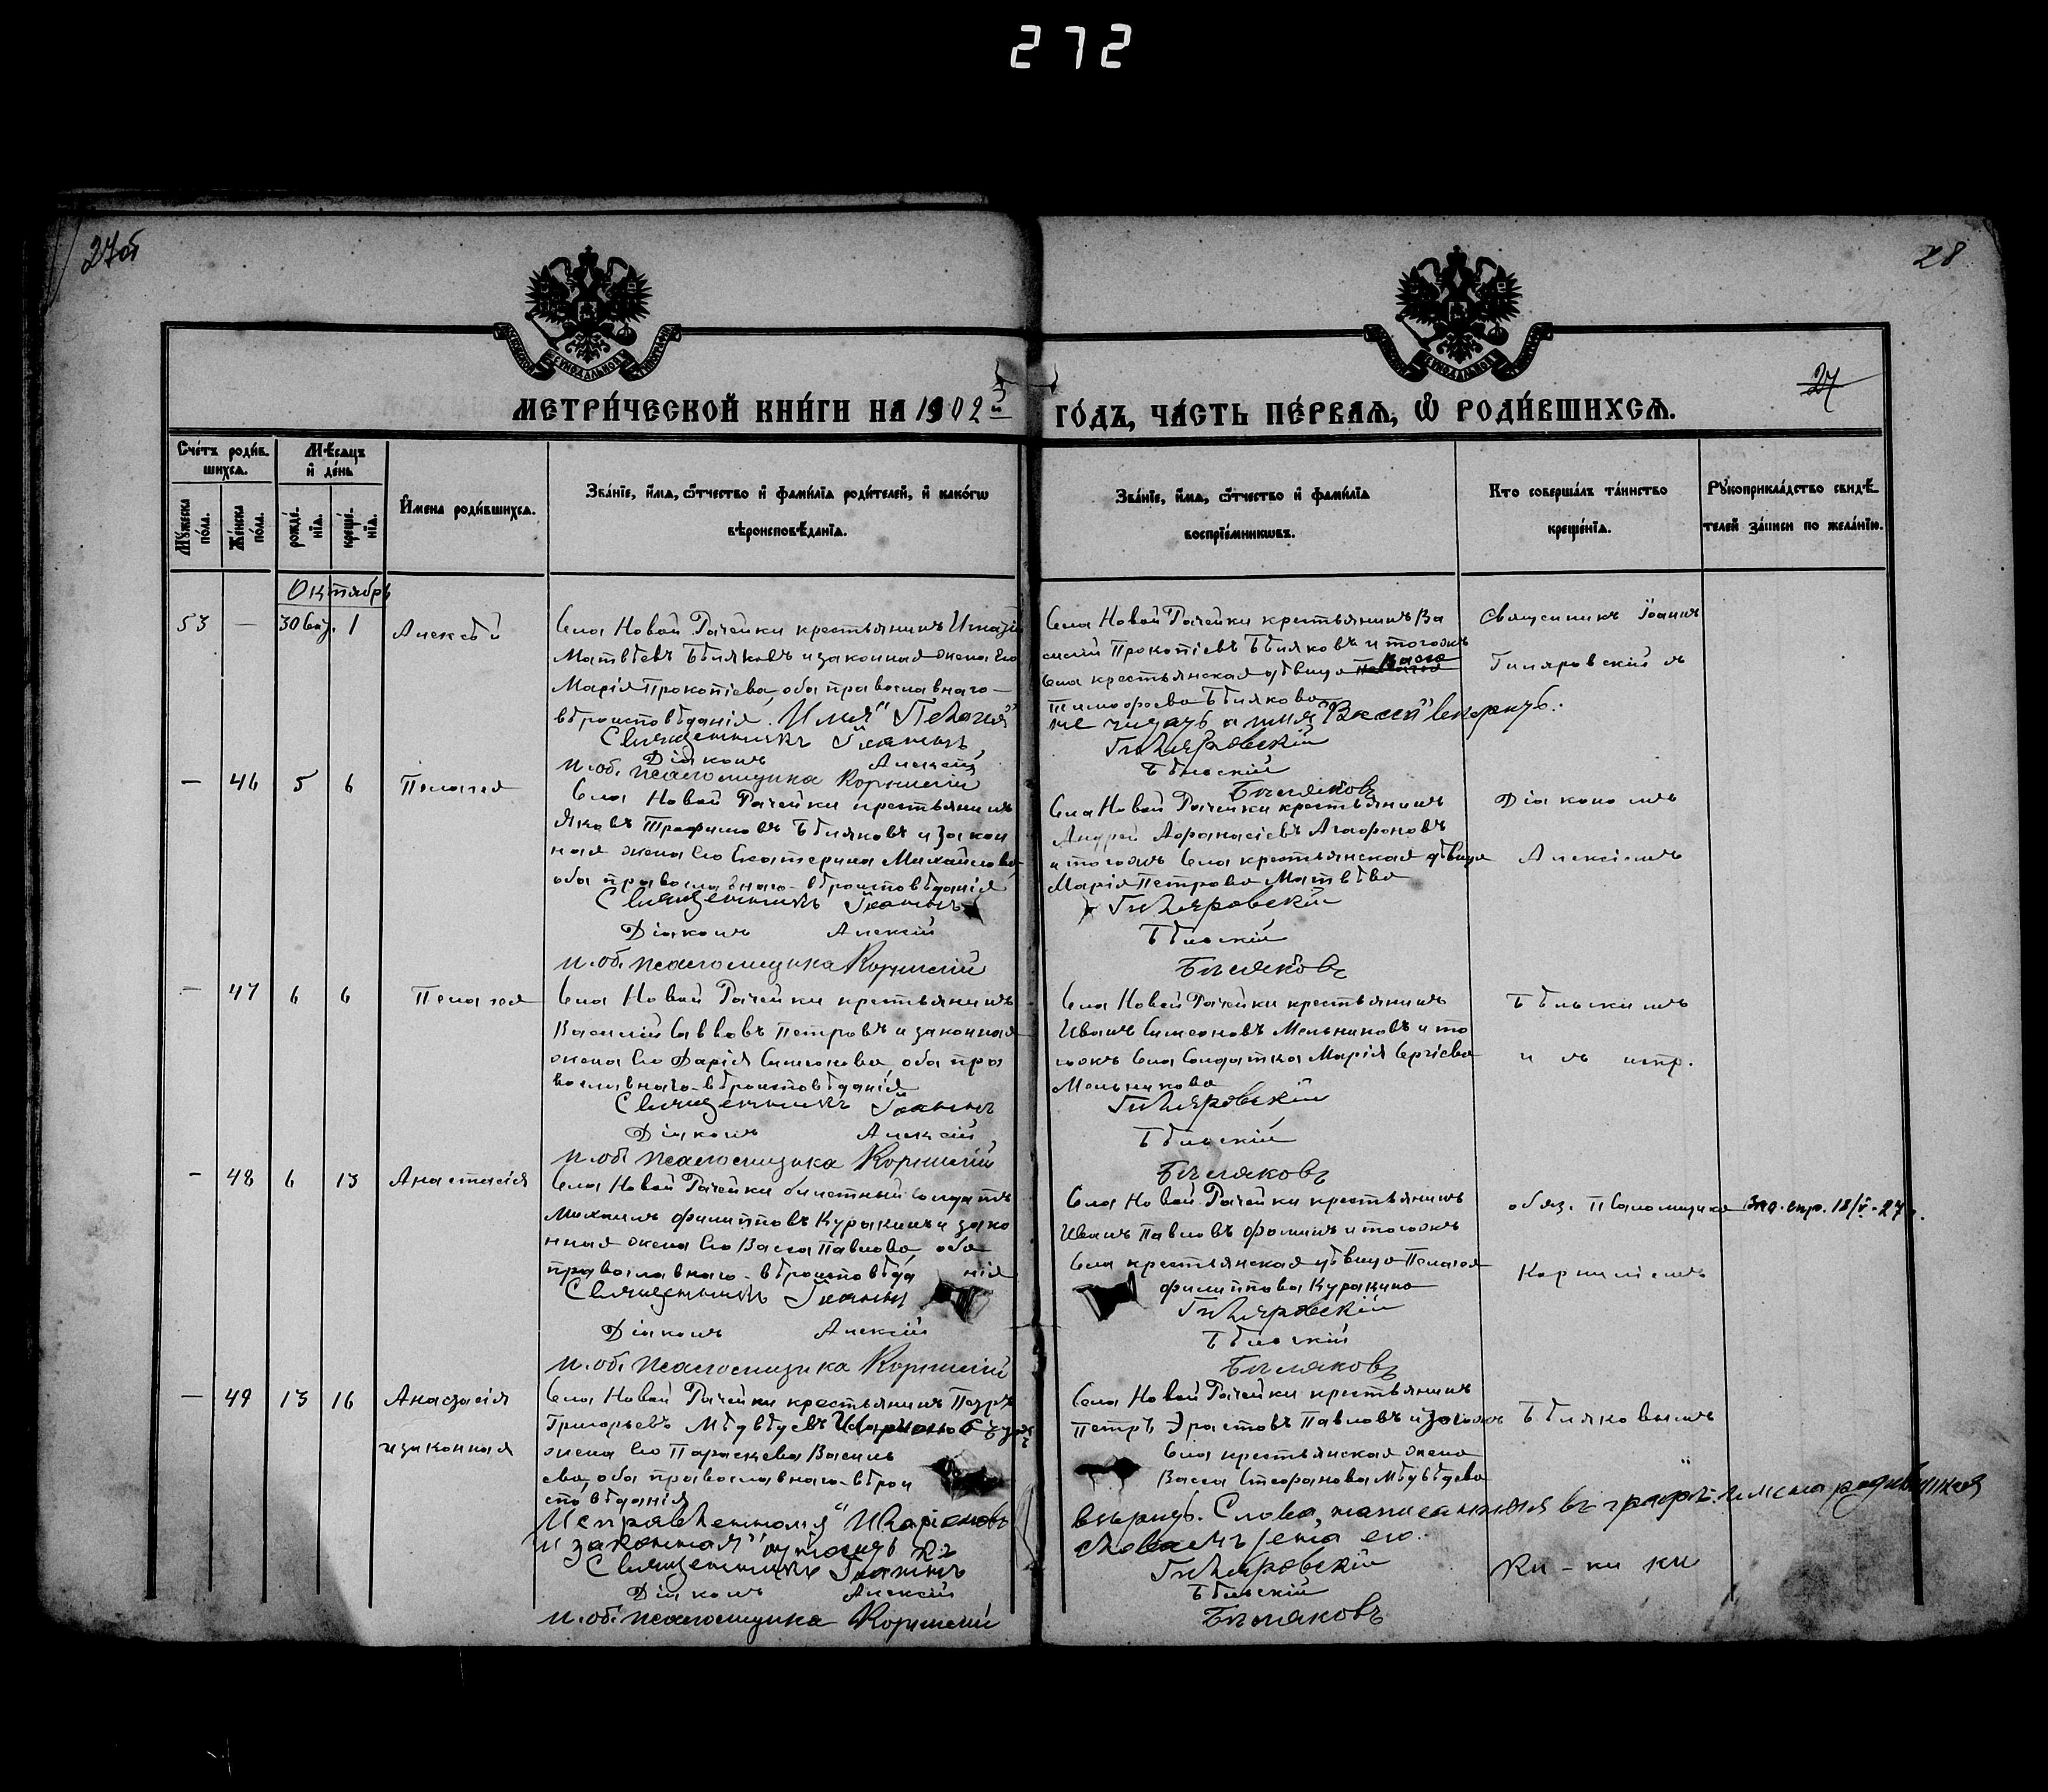 272
27об
28
27
МЕТРИ́ЧЕСКОЙ КНИ́ГИ НА 1902й
ГО́ДЪ, ЧА́СТЬ ПЕ́РВАѦ, Ѽ РОДИ́ВШИХСѦ.
Сче́тъ роди́в-
шихсѧ.
Мѣсѧцъ
и де́нь
Мꙋжеска по́ла.
Же́нска по́ла.
рожде́нїѧ.
креще́нїѧ.
И́мена роди́вшихсѧ.
Зва́нїе, и́мѧ, ѻ́тчество и фами́лїѧ роди́телей, и како́гѡ
вѣроисповѣ́данїѧ.
Зва́нїе, и́мѧ, ѻ́тчество и фами́лїѧ
воспрїе́мникѡвъ.
Кто соверша́лъ та́инство
креще́нїѧ.
Рꙋкоприкла́дство свидѣ́-
телей за́писи по жела́нїю.
Октябрь
53 — 30 1 Алексѣй
Села Новой Рачейки крестьянинъ Игнатій
Матвѣевъ Бѣляковъ и законная жена его
Марія Прокопіева, оба православнаго
вѣроисповѣданія. Имя "Пелагія"
Священникъ Іоаннъ
Діаконъ Алексій
и. об. псаломщика Корнилій
Села Новой Рачейки крестьянинъ Ва
силій Прокопіевъ Бѣляковъ и тогожъ
села крестьянская дѣвица Васса
Тимофеева Бѣлякова
не читать а имя "Васса" вѣрить.
Гиляровскій
Бѣльскій
Бѣляковъ
Священникъ Іоаннъ
Гиляровскій съ
— 46 5 6 Пелагея
Села Новой Рачейки крестьянинъ
Яковъ Трофимовъ Бѣляковъ и закон
ная жена его Екатерина Михайлова
оба православнаго вѣроисповѣданія
Священникъ Іоаннъ
Діаконъ Алексій
и. об. псаломщика Корнилій
Села Новой Рачейки крестьянинъ
Андрей Афанасіевъ Агафоновъ
и тогожъ села крестьянская дѣвица
Марія Петрова Матвѣева
Гиляровскій
Бѣльскій
Бѣляковъ
Діакономъ
Алексіемъ
— 47 6 6 Пелагея
Села Новой Рачейки крестьянинъ
Василій Саввовъ Петровъ и законная
жена его Дарія Симеонова, оба пра
вославнаго вѣроисповѣданія
Священникъ Іоаннъ
Діаконъ Алексій
и. об. псаломщика Корнилій
Села Новой Рачейки крестьянинъ
Иванъ Симеоновъ Мельниковъ и то
гожъ села солдатка Марія Сергіева
Мельникова
Гиляровскій
Бѣльскій
Бѣляковъ
Бѣльскимъ
и съ испр.
— 48 6 13 Анастасія
Села Новой Рачейки билетный солдатъ
Михаилъ Филипповъ Куракинъ и зако
нная жена его Васса Павлова, оба
православнаго вѣроисповѣданія
Священникъ Іоаннъ
Діаконъ Алексій
и. об. псаломщика Корнилій
Села Новой Рачейки крестьянинъ
Иванъ Павловъ Фоминъ и тогожъ
села крестьянская дѣвица Пелагея
Филиппова Куракина
Гиляровскій
Бѣльскій
Бѣляковъ
обяз. псаломщика
Корниліемъ
18/V-27
— 49 13 16 Анастасія
и законная
Села Новой Рачейки крестьянинъ Петръ
Григорьевъ Мѣдвѣдевъ
жена его Параскева Василь
ева, оба православнаго вѣрои
сповѣданія
Исправленному "Иларіоновъ
и законная"
Священникъ Іоаннъ
Діаконъ Алексій
и. об. псаломщика Корнилій
Села Новой Рачейки крестьянинъ
Петръ Эрастовъ Павловъ и тогожъ
села крестьянская жена
Васса Стефанова Мѣдвѣдева
вѣрить. Слова, написанныя въ графѣ: имена родившихся
жена его.
Гиляровскій
Бѣльскій
Бѣляковъ
Бѣляковымъ